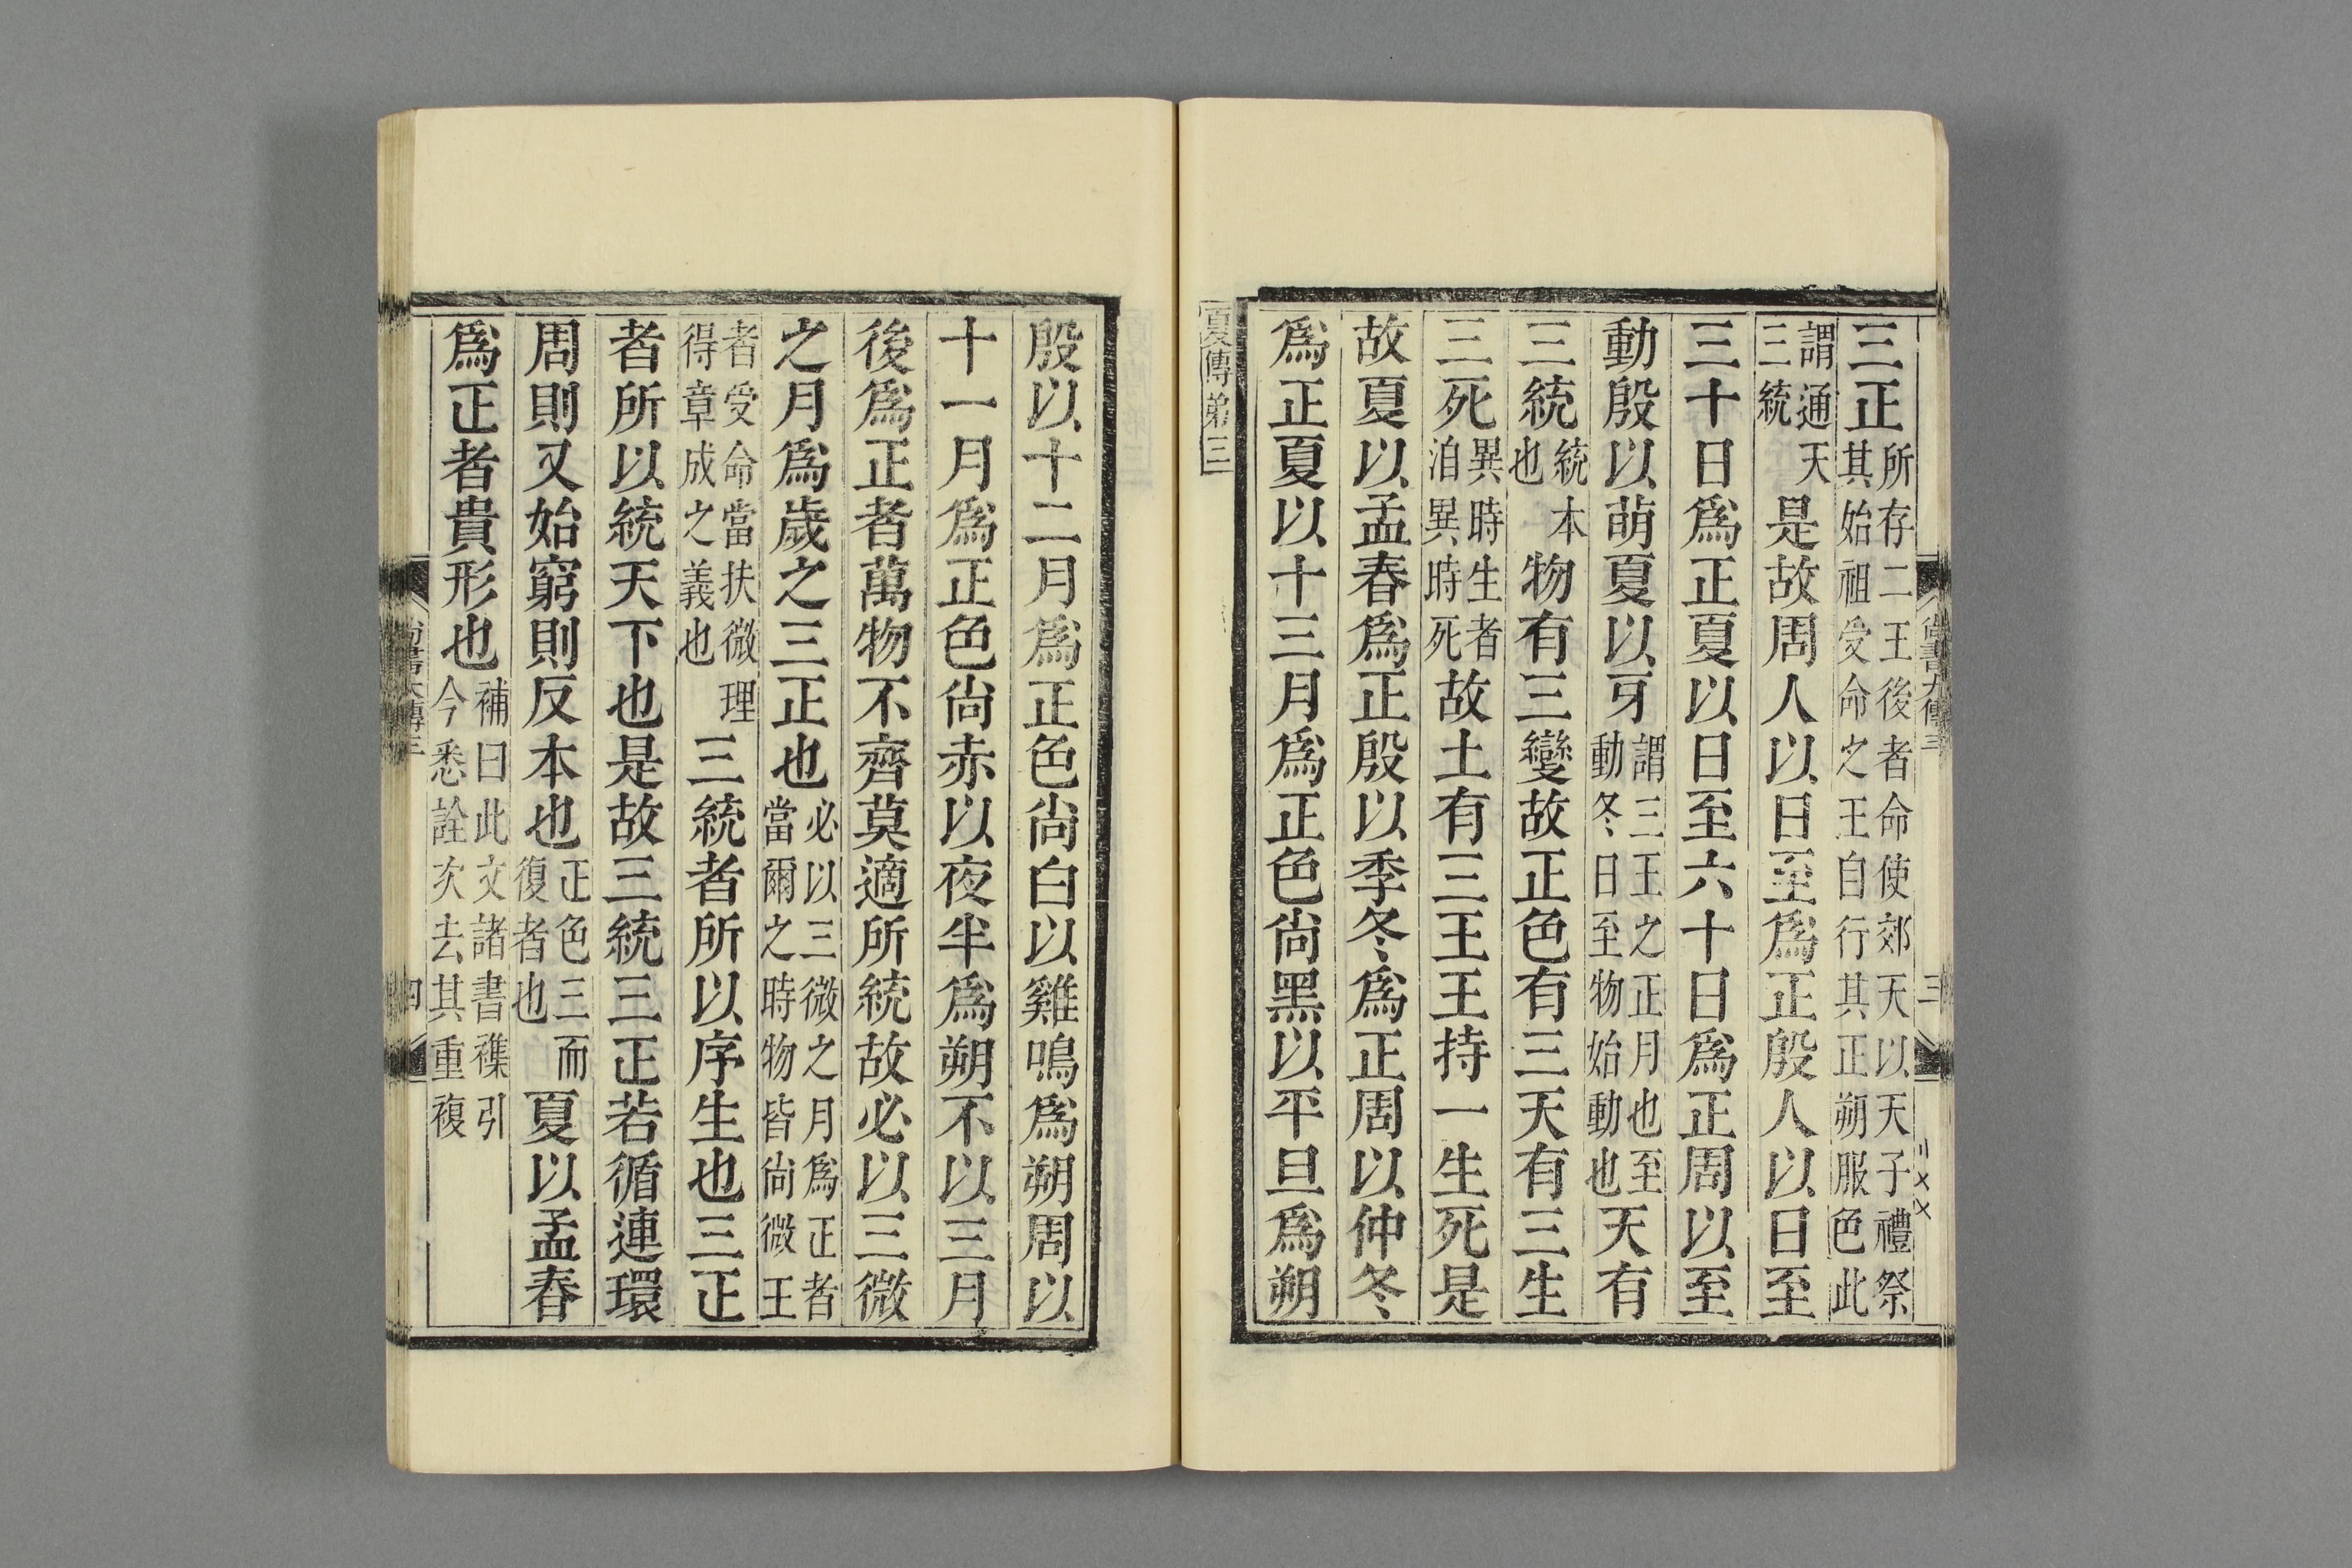 尚書大傳三
三
〢〤〤
三正所存二王後者命使郊天以天子禮祭其始祖受命之王自行其正朔服色此
謂通天三統是故周人以日至爲正殷人以日至
三十日爲正夏以日至六十日爲正周以至
動殷以萌夏以牙謂三王之正月也至動冬日至物始動也天有
三統統本也物有三變故正色有三天有三生
三死異時生者洎異時死故土有三王王持一生死是
故夏以孟春爲正殷以季冬爲正周以仲冬
爲正夏以十三月爲正色尚黑以平旦爲朔
夏傳弟三
殷以十二月爲正色尚白以雞鳴爲朔周以
十一月爲正色尚赤以夜半爲朔不以三月
後爲正者萬物不齊莫適所統故必以三微
之月爲歲之三正也必以三微之月爲正者當爾之時物皆尚微王
者受命當扶微理得章成之義也三統者所以序生也三正
者所以統天下也是故三統三正若循連環
周則又始窮則反本也正色三而復者也夏以孟春
爲正者貴形也補曰此文諸書襍引今悉詮次去其重複
尚書大傳三
四